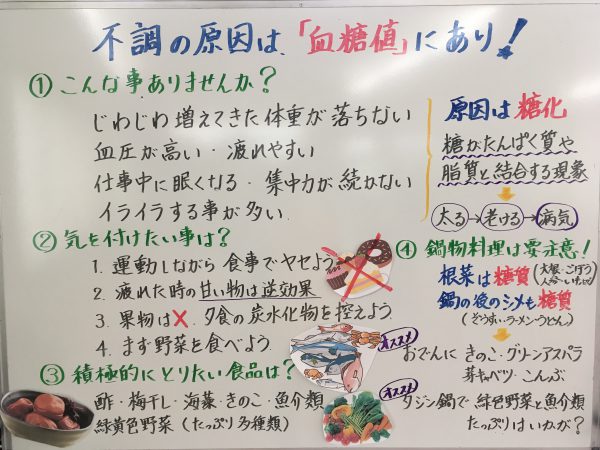 不調の原因は、「血糖値」にあり！
① こんな事ありませんか？
じわじわ増えてきた体重が落ちない
血圧が高い・疲れやすい
仕事中に眠くなる・集中力が続かない
イライラする事が多い
原因は糖化
糖がたんぱく質や
脂質と結合する現象
太る→老ける→病気
② 気を付けたい事は？
1. 運動しながら食事でヤセよう
2. 疲れた時の甘い物は逆効果
3. 果物は×、夕食の炭水化物を控えよう
4. まず野菜を食べよう
③ 積極的にとりたい食品は？
酢・梅干し・海藻・きのこ・魚介類
緑黄色野菜（たっぷり多種類）
④ 鍋物料理は要注意！
根菜は糖質（大根・ごぼう
人参・いもetc）
鍋の後のシメも糖質
（ぞうすい・ラーメン・うどん）
オススメ
おでんに きのこ・グリーンアスパラ
芽キャベツ・こんぶ
オススメ
タジン鍋で 緑色野菜と魚介類
たっぷりはいかが？